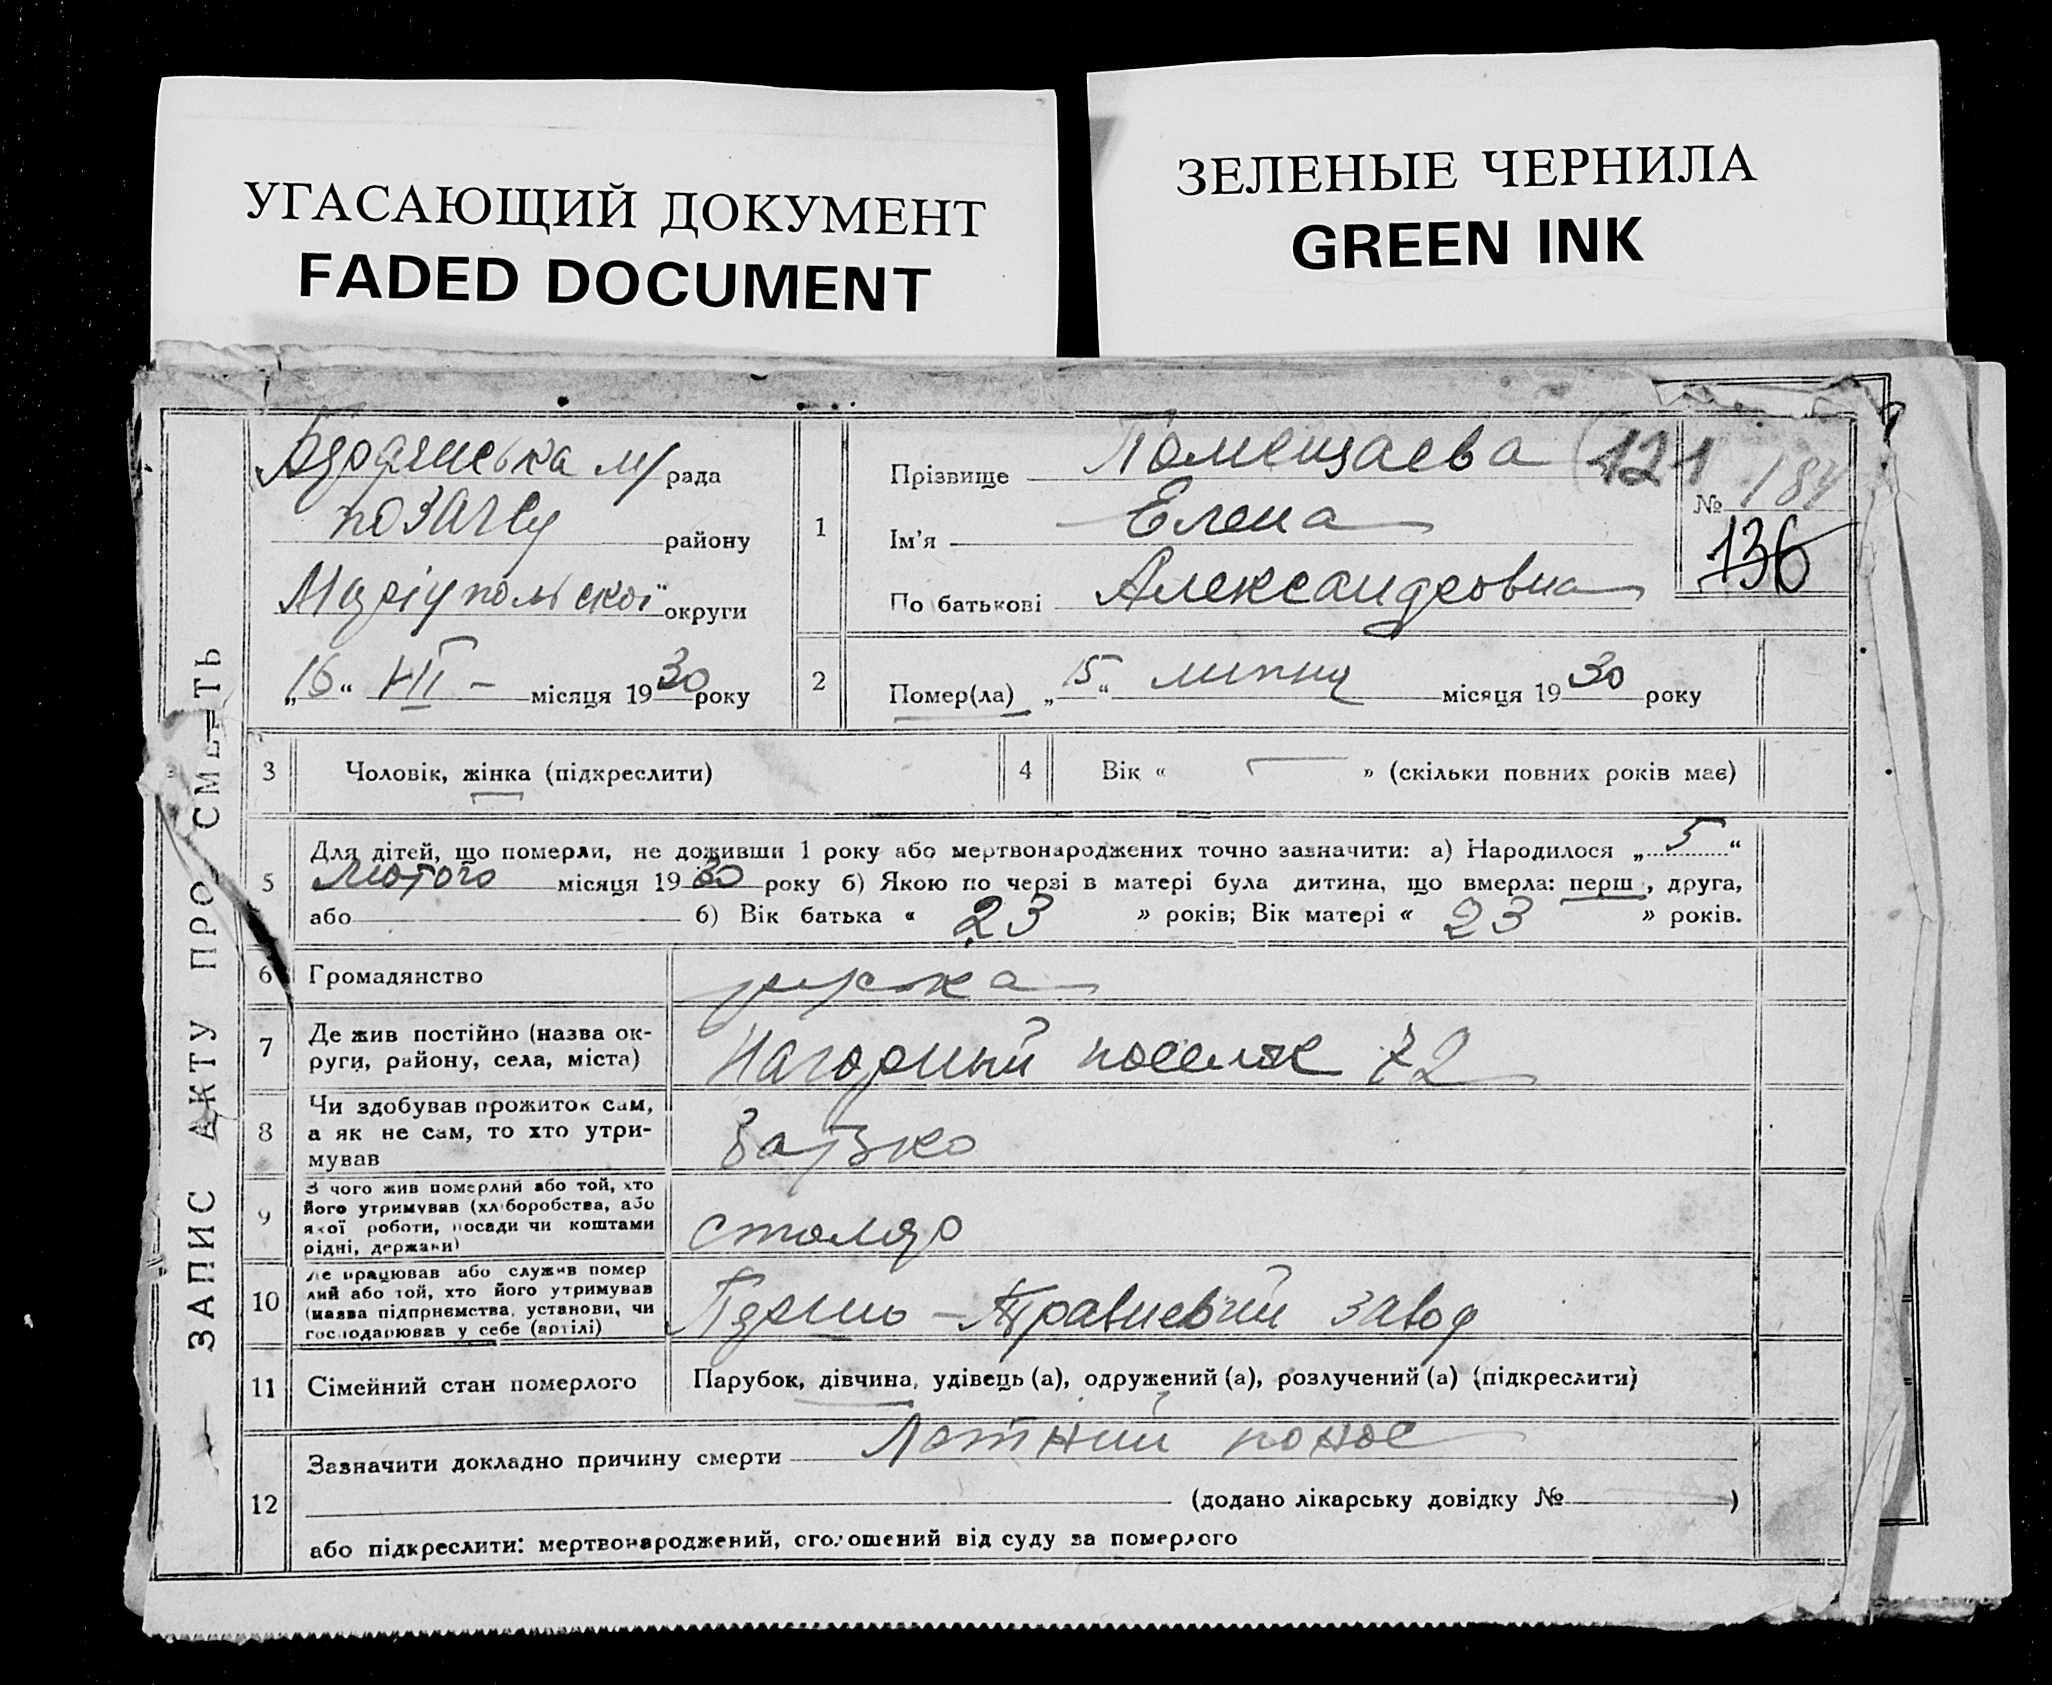 УГАСАЮЩИЙ ДОКУМЕНТ
FADED DOCUMENT
ЗЕЛЕНЫЕ ЧЕРНИЛА
GREEN INK
ЗАПИС АКТУ ПРО СМЕРТЬ
Бердянська м/ рада
району
Маріупольскої округи
„16“ VII - місяця 1930 року
1
Прізвище Помещаева
121
Ім'я Елена
По батькові Александровна
№ 184
136
2
Помер(ла) „15“ липня місяця 1930 року
3
Чоловік, жінка (підкреслити)
4
Вік « — » (скільки повних років має)
5
Для дітей, що померли, не доживши 1 року або мертвонароджених точно зазначити: а) Народилося „5“
Лютого місяця 1930 року б) Якою по черзі в матері була дитина, що вмерла: перш , друга,
або б) Вік батька « 23 » років; Вік матері « 23 » років.
6
Громадянство
7
Де жив постійно (назва ок-
руги, району, села, міста)
Нагорный поселок 72
8
Чи здобував прожиток сам,
а як не сам, то хто утри-
мував
Батько
9
З чого жив померлий або той, хто
його утримував (хліборобства, або
якої роботи, посади чи коштами
рідні, держави)
столяр
10
Де працював або служив помер
лий або той, хто його утримував
(назва підприємства, установи, чи
господарював у себе (артілі)
Першо-Травневий завод
11
Сімейний стан померлого
Парубок, дівчина, удівець (а), одружений (а), розлучений (а) (підкреслити)
12
Зазначити докладно причину смерти Летний понос
(додано лікарську довідку № )
або підкреслити: мертвонароджений, оголошений від суду за померлого